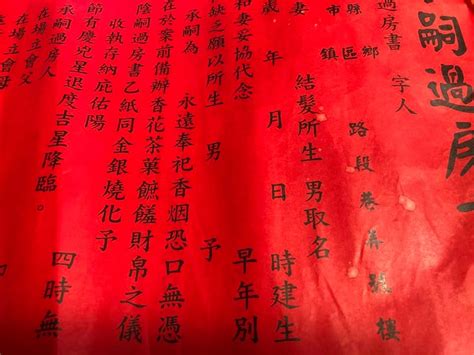 嗣過房
過房書 字人
縣市 鄉區鎮 路段巷弄號樓
妻 結髮所生 男取名
歲 年 月 日 時建生
和妻妥協代念 早年別
缺之願以所生 男 予
承嗣為 永遠奉祀香烟恐口無憑
在於案前備辦香花茶菓餚饈財帛之儀
陰嗣過房書乙紙同金銀燒化予
收執存納庇佑陽 四時無
節有慶兇星退度吉星降臨。
承嗣過房書
在場立會父
在場立會母